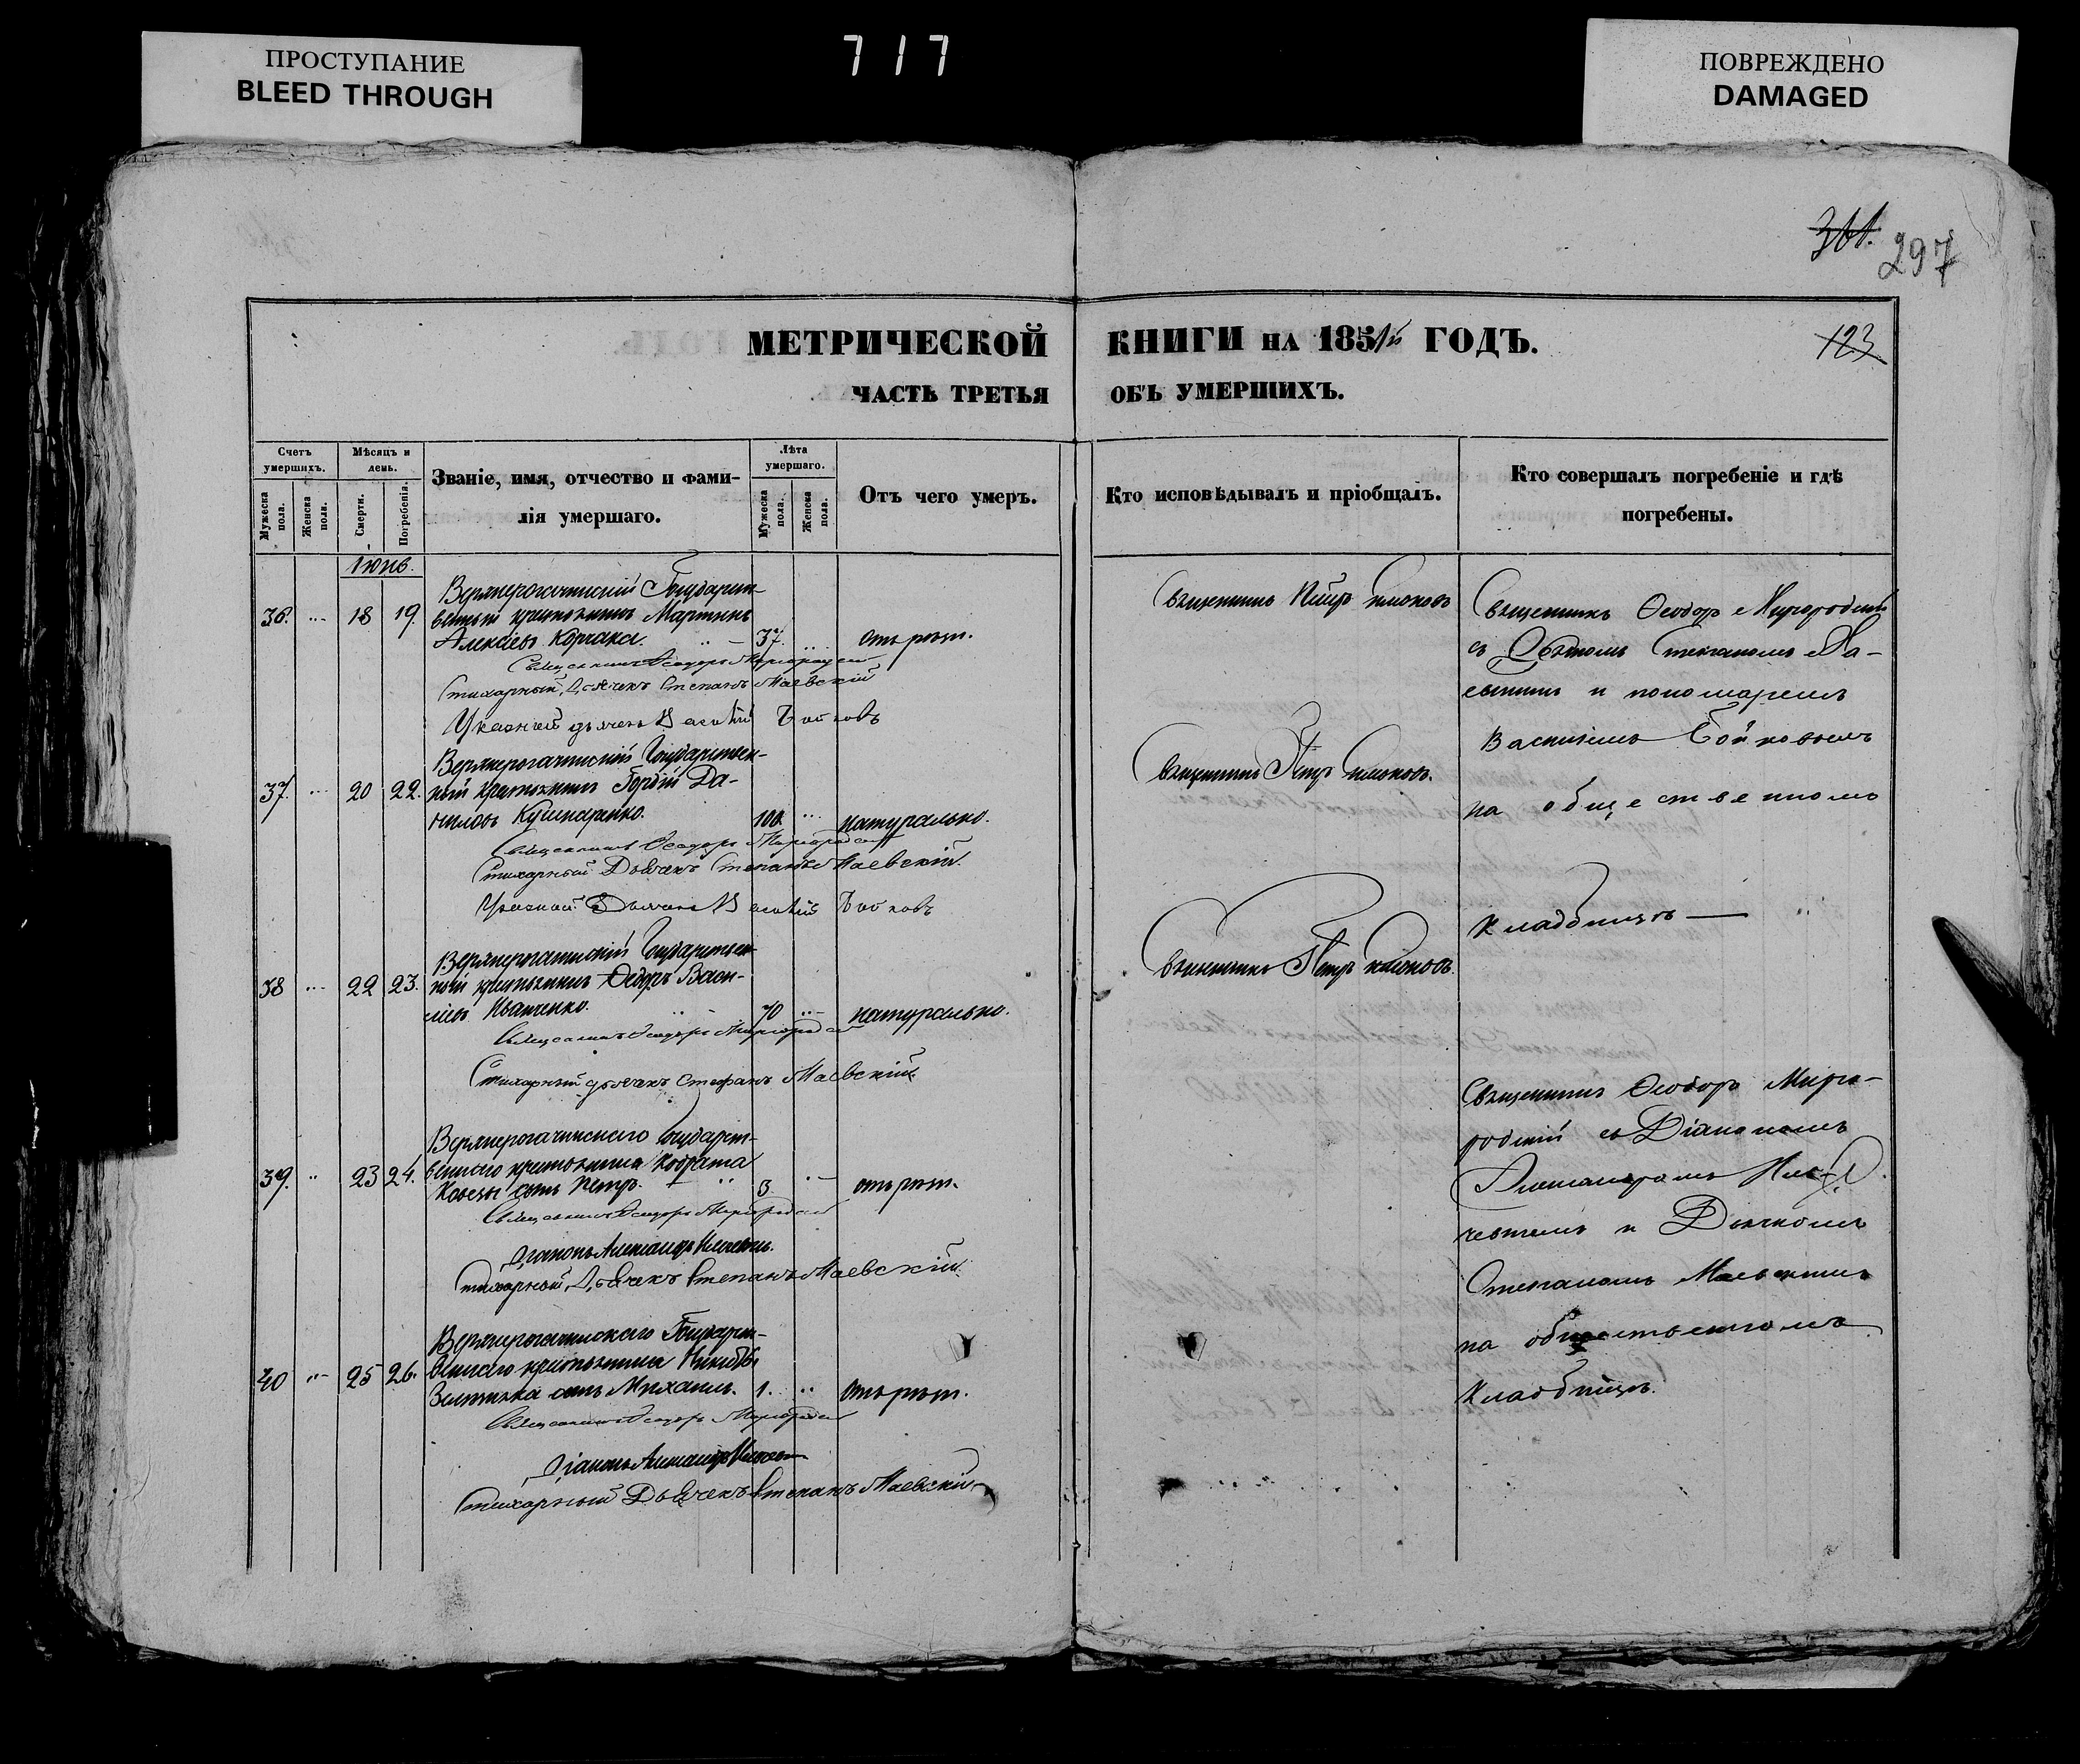 ПРОСТУПАНИЕ
BLEED THROUGH
717
ПОВРЕЖДЕНО
DAMAGED
361.
297
МЕТРИЧЕСКОЙ КНИГИ НА 1851й ГОДЪ.
123
ЧАСТЬ ТРЕТЬЯ ОБЪ УМЕРШИХЪ.
Счетъ умершихъ.
Мужеска пола.
Женска пола.
Мѣсяцъ и день.
Смерти.
Погребенія.
Званіе, имя, отчество и фами-
лія умершаго.
Лѣта умершаго.
Мужеска пола.
Женска пола.
Отъ чего умеръ.
Кто исповѣдывалъ и пріобщалъ.
Кто совершалъ погребеніе и гдѣ
погребены.
Іюнь.
Верхнерогачинскій Государст-
36. 18 19. венный крестьянинъ Мартинъ
Алексѣевъ Корчака. 37.
Священникъ Ѳеодоръ Миргородскій
Стихарный Дьячекъ Степанъ Маевскій
Указный дьячекъ Василій Бойковъ
Священникъ Петръ
Священникъ Ѳеодоръ Миргородскій
съ Дьячкомъ Степаномъ Ма-
евскимъ и пономаремъ
Василіемъ Бойковымъ
на общественномъ
кладбищѣ —
Верхнерогачинскій Государствен-
37. 20 22. ный крестьянинъ Гордій Да-
ниловъ Кушнаренко. 100. натурально.
Священникъ Ѳеодоръ Миргородскій
Стихарный Дьячекъ Степанъ Маевскій
Указный Дьячекъ Василій Бойковъ
Священникъ Петръ
Верхнерогачинскій Государствен-
38 22 23. ный крестьянинъ Ѳедоръ Васи-
ліевъ Иващенко. 70 натурально.
Священникъ Ѳеодоръ Миргородскій
Стихарный дьячекъ Стефанъ Маевскій
Священникъ Петръ
Верхнерогачинскаго Государст-
39. 23 24. веннаго крестьянина Кодрата
сынъ Петръ. 3
Священникъ Ѳеодоръ Миргородскій
Діаконъ Александръ
Стихарный Дьячекъ Степанъ Маевскій
Священникъ Ѳеодоръ Мирго-
родскій съ Діакономъ
Александромъ
и Дьячкомъ
Степаномъ Маевскимъ
на общественномъ
кладбищѣ.
Верхнерогачинскаго Государст-
40 25 26. веннаго крестьянина
сынъ Михаилъ. 1.
Священникъ Ѳеодоръ Миргородскій
Діаконъ Александръ
Стихарный Дьячекъ Степанъ Маевскій